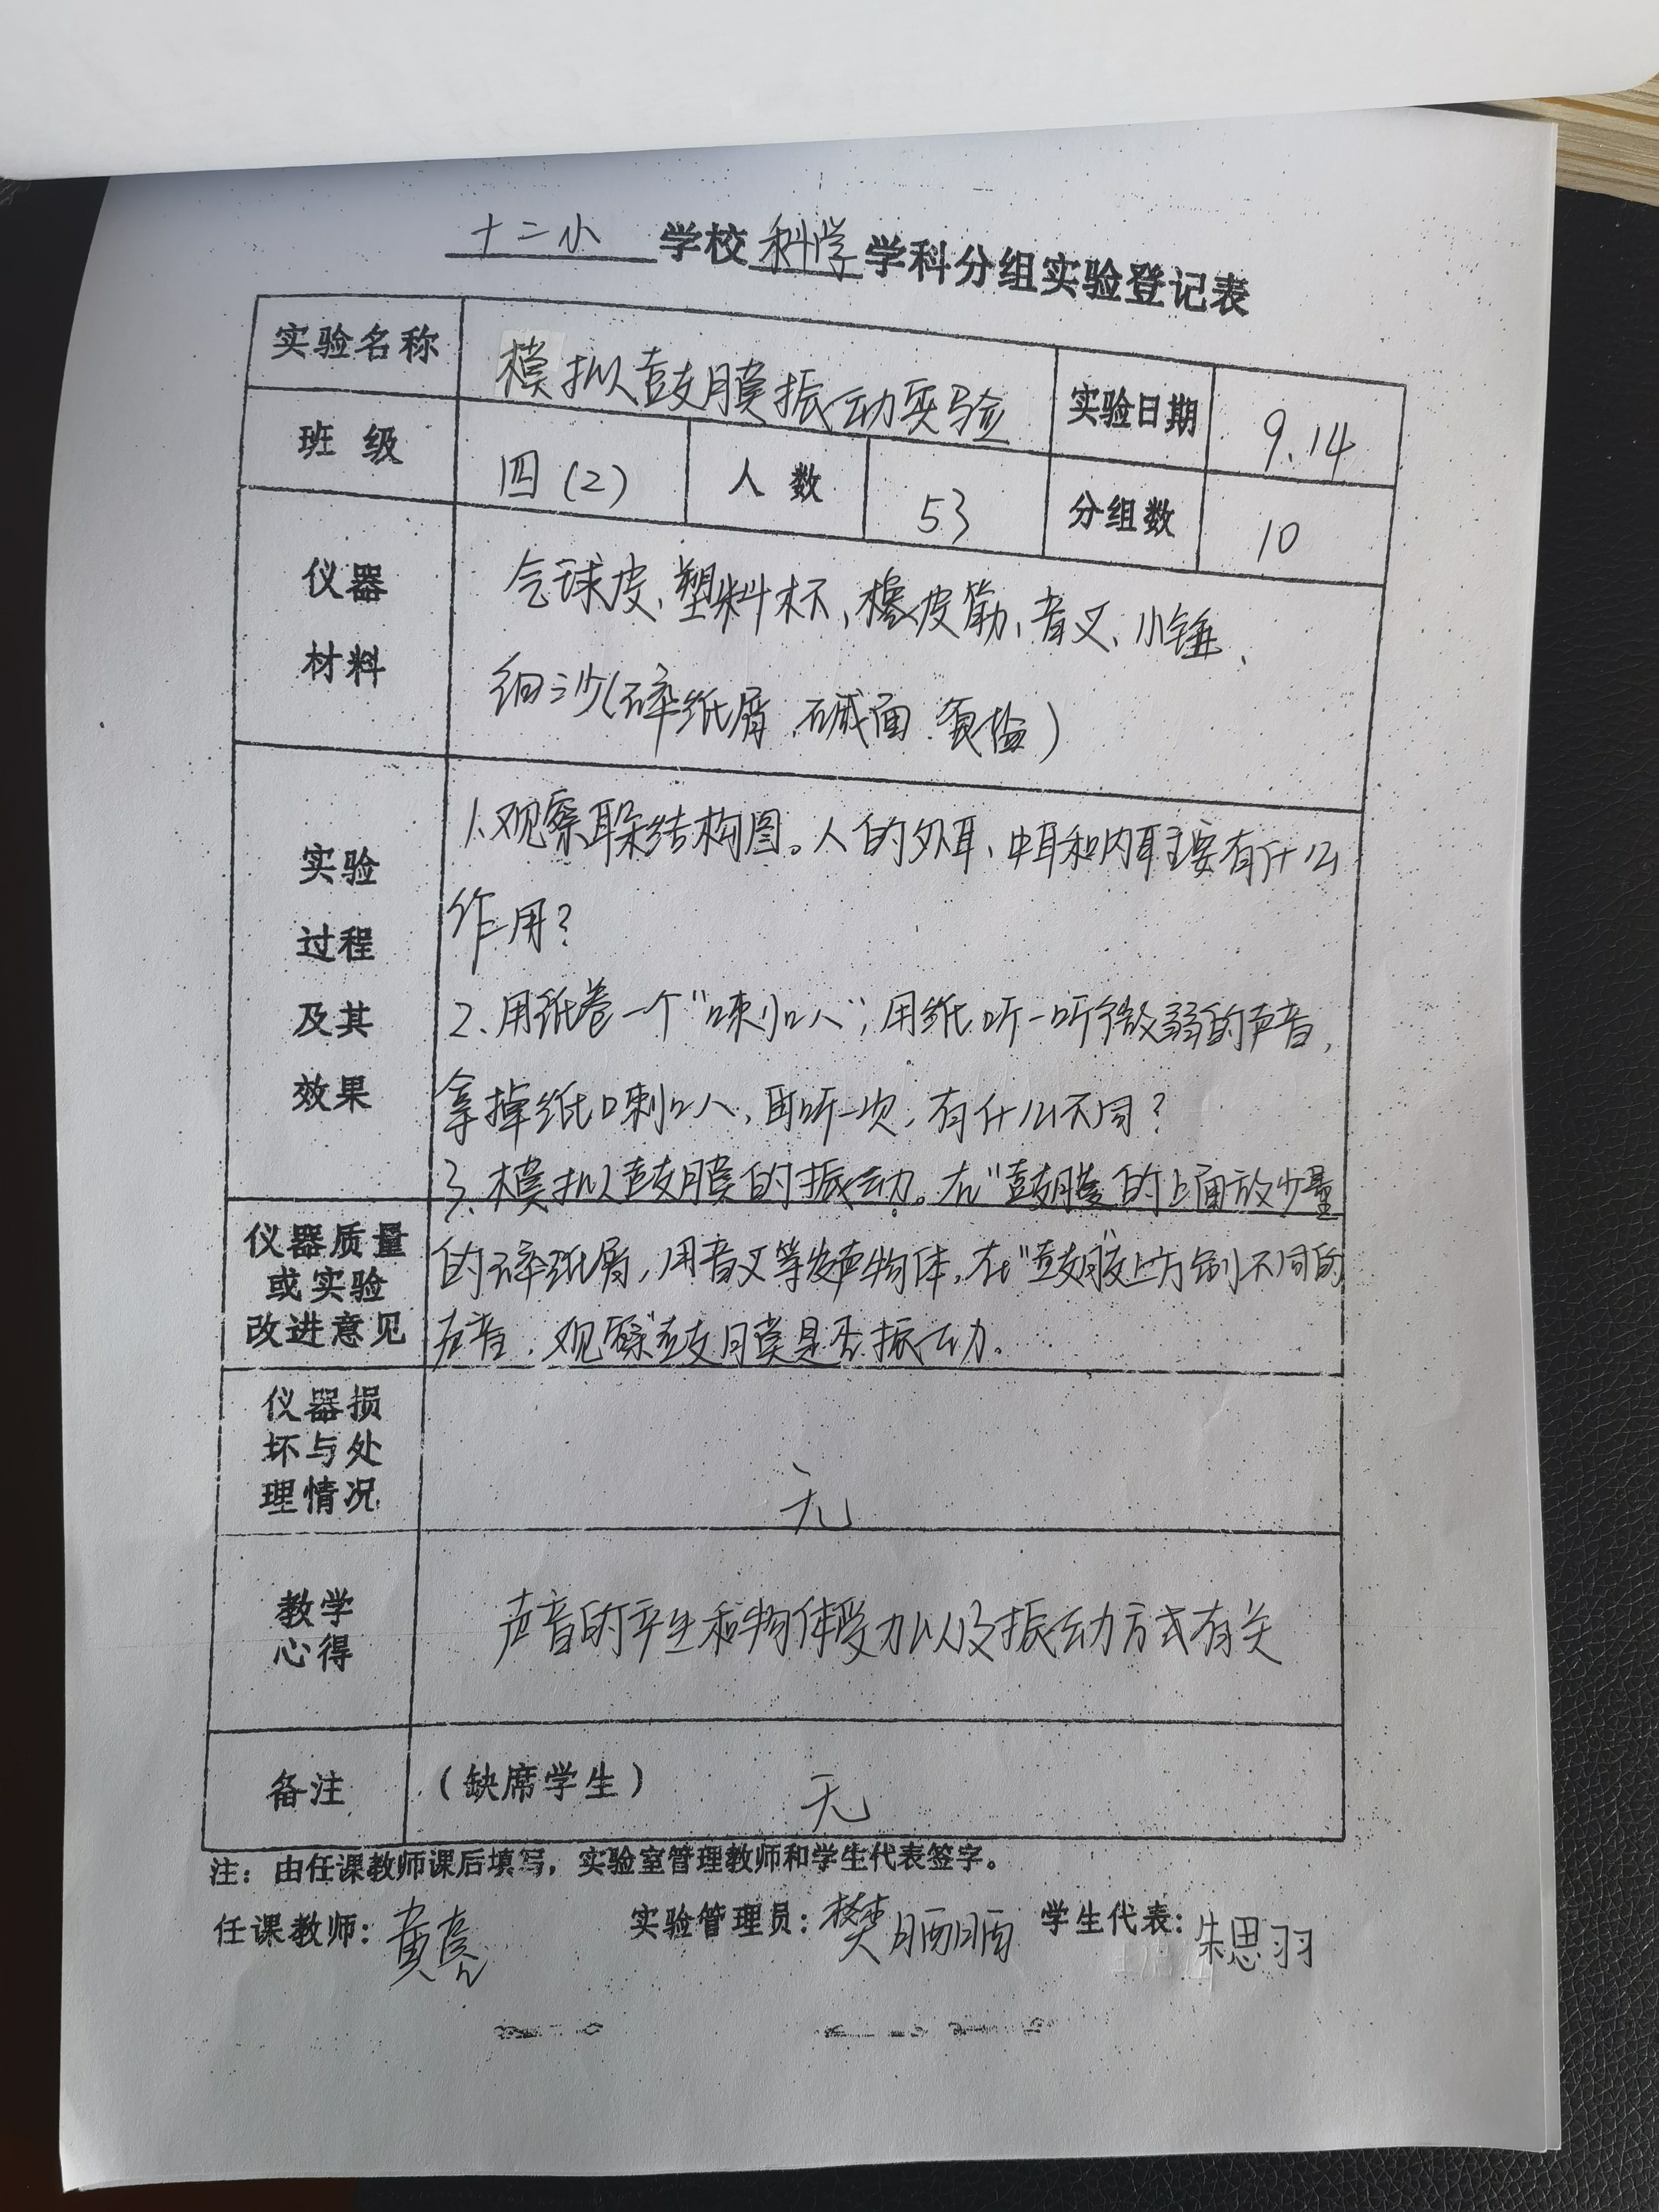 十二小 学校 科学 学科分组实验登记表
实验名称 模拟鼓膜振动实验 实验日期 9.14
班级 四(2) 人数 53 分组数 10
仪器材料
气球皮、塑料杯、橡皮筋、音叉、小锤、
细沙(碎纸屑、碱面、食盐)
实验过程及其效果
1.观察耳朵结构图。人的外耳、中耳和内耳主要有什么
作用?
2.用纸卷一个“喇叭”,用纸听一听微弱的声音,
拿掉纸喇叭,再听一次,有什么不同?
3.模拟鼓膜的振动。在“鼓膜”的上面放少量
仪器质量或实验改进意见
的碎纸屑,用音叉等发声物体,在“鼓膜”上方制不同的
声音,观察“鼓膜是否振动。
仪器损坏与处理情况
无
教学心得
声音的产生和物体受力以及振动方式有关
备注 (缺席学生) 无
注:由任课教师课后填写,实验室管理教师和学生代表签字。
任课教师:黄亮 实验管理员:樊 学生代表:朱思羽